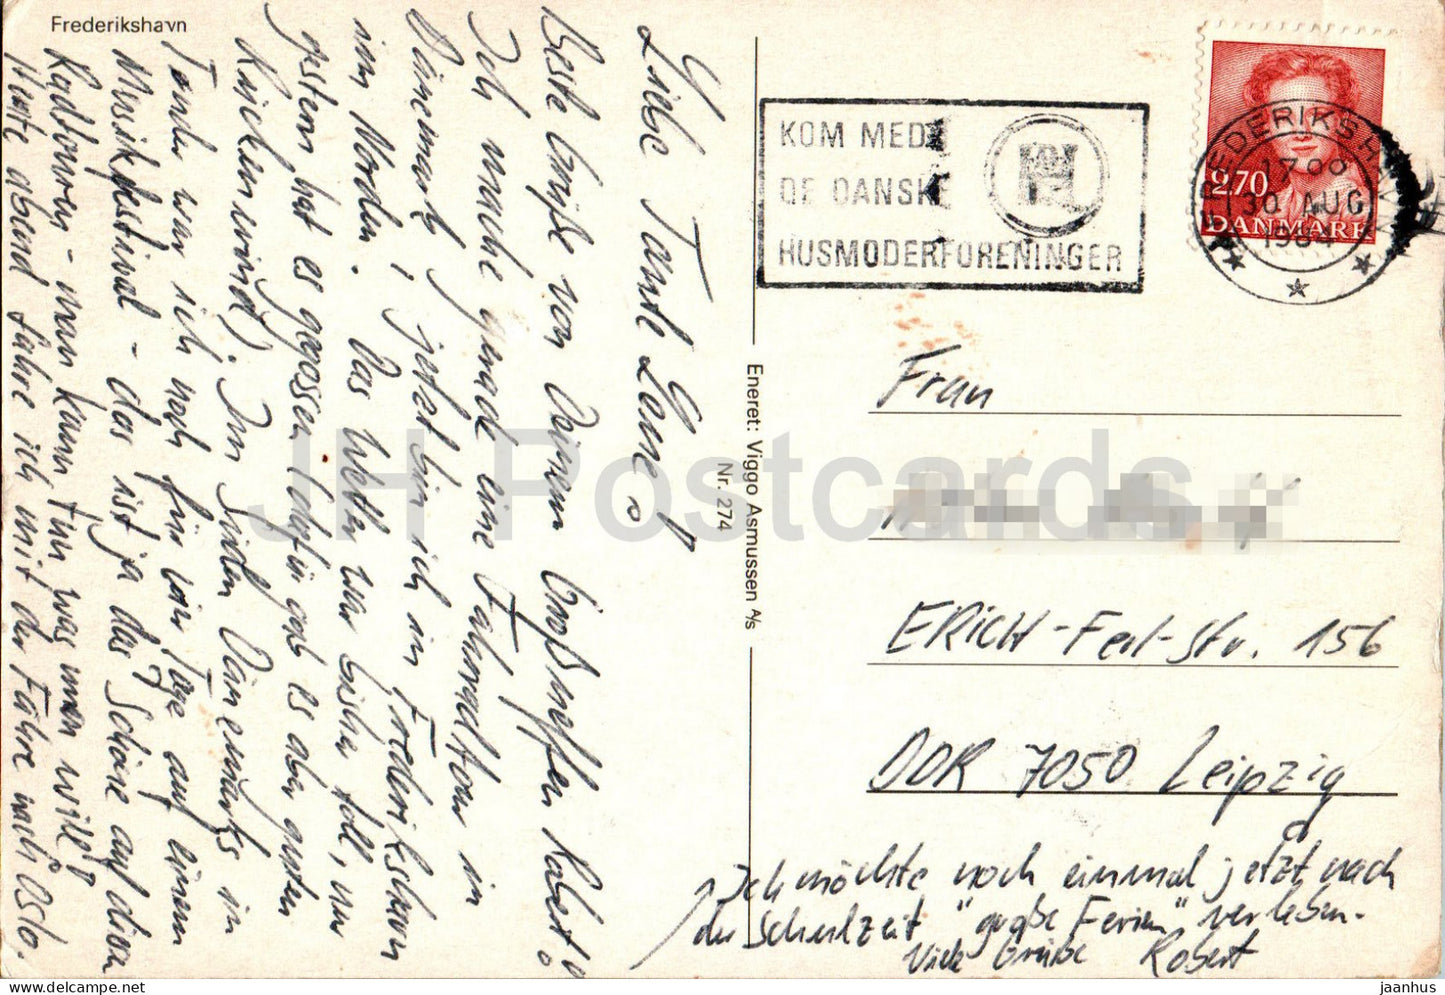 Frederikshavn
Liebe Tante Lene!
Beste Grüße von Deinem Großneffen Robert!
Ich mache grad eine Fahrradtour in
Dänemark, jetzt bin ich in Frederikshavn
im Norden. Das Wetter war bisher toll, nur
gestern hat es gegossen (dafür gab es aber guten
Rückenwind). Im Süden Dänemarks in
Tønder war ich noch für vier Tage auf einem
Musikfestival - das ist ja das Schöne auf dieser
Radtour - man kann tun was man will!
Heute abend fahre ich mit der Fähre nach Oslo.
Eneret: Viggo Asmussen A/s
Nr. 274
KOM MED
DE DANSKE
HUSMODERFORENINGER
FREDERIKSHAVN
17 00
30 AUG
2.70
DANMARK
Frau
ERICH-Ferl-Str. 156
DDR 7050 Leipzig
Ich möchte noch einmal jetzt nach
der Schulzeit "große Ferien" verleben.
Viele Grüße Robert
JH Postcards
jaanhus www.delcampe.net